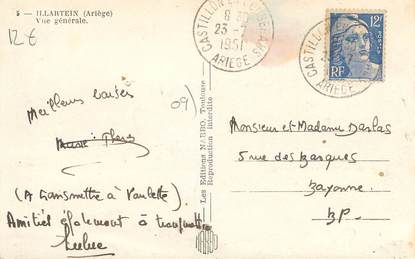 5 - ILLARTEIN (Ariège)
Vue générale.
12 €
CASTILLON-EN-COUSERANS
8
23 -
1951
ARIEGE
CASTILLON
ARIEGE
12F
POSTES
RF
09)
Meilleurs baisers
(A transmettre à Paulette)
Amitiés également à
Lulue
Les Editions NARBO, Toulouse
Reproduction interdite
Monsieur et Madame Darlas
5 rue des Basques
Bayonne.
B.P.